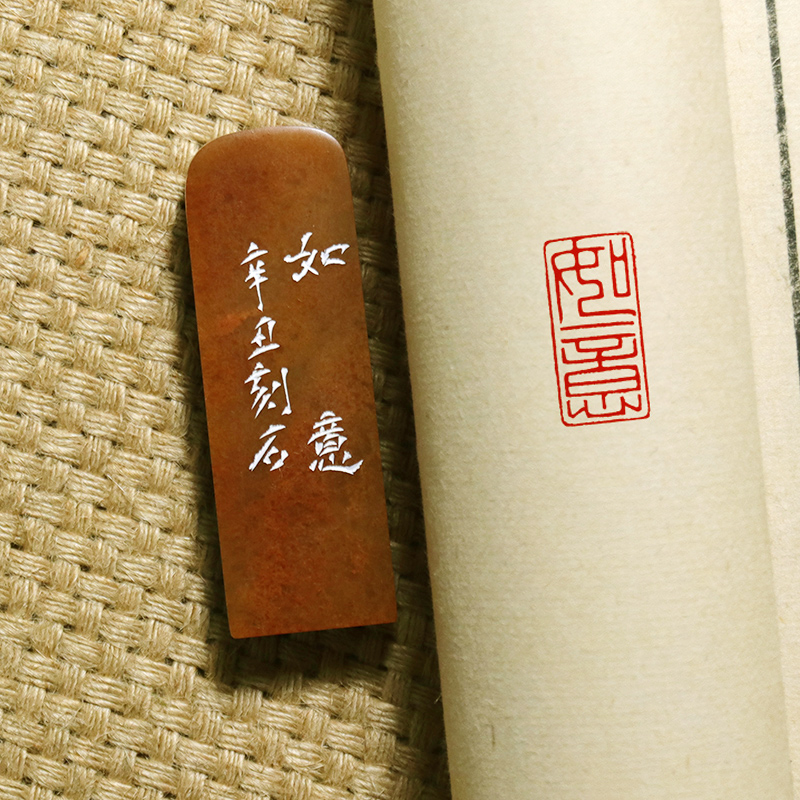 如意
辛丑刻石
如意